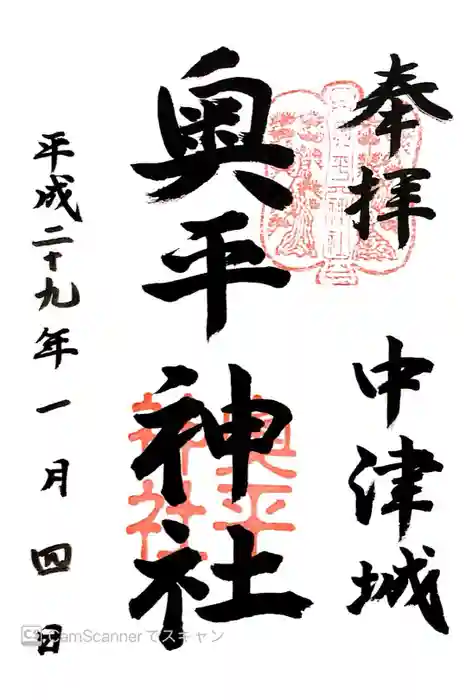 奉拝
中津城
奥平神社
奥平
神社
平成二十九年一月四日
CS CamScannerでスキャン